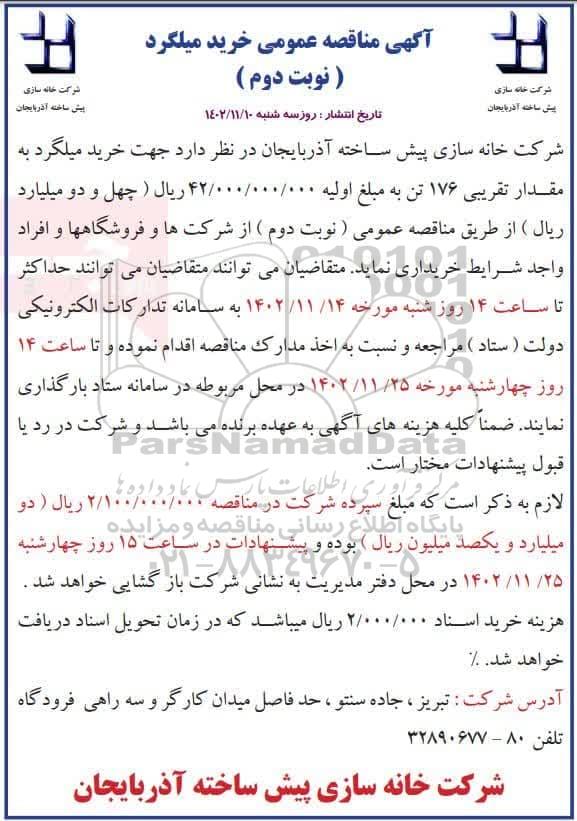 آگهی مناقصه عمومی خرید میلگرد
( نوبت دوم )
شرکت خانه سازی
پیش ساخته آذربایجان
شرکت خانه سازی
پیش ساخته آذربایجان
تاریخ انتشار : روزسه شنبه ۱۴۰۲/۱۱/۱۰
شرکت خانه سازی پیش ساخته آذربایجان در نظر دارد جهت خرید میلگرد به
مقدار تقریبی ۱۷۶ تن به مبلغ اولیه ۴۲/۰۰۰/۰۰۰/۰۰۰ ریال ( چهل و دو میلیارد
ریال ) از طریق مناقصه عمومی ( نوبت دوم ) از شرکت ها و فروشگاهها و افراد
واجد شرایط خریداری نماید. متقاضیان می توانند متقاضیان می توانند حداکثر
تا ساعت ۱۴ روز شنبه مورخه ۱۴/ ۱۱/ ۱۴۰۲ به سامانه تدارکات الکترونیکی
دولت ( ستاد ) مراجعه و نسبت به اخذ مدارک مناقصه اقدام نموده و تا ساعت ۱۴
روز چهارشنبه مورخه ۲۵/ ۱۱/ ۱۴۰۲ در محل مربوطه در سامانه ستاد بارگذاری
نمایند. ضمناً کلیه هزینه های آگهی به عهده برنده می باشد و شرکت در رد یا
قبول پیشنهادات مختار است.
لازم به ذکر است که مبلغ سپرده شرکت در مناقصه ۲/۱۰۰/۰۰۰/۰۰۰ ریال ( دو
میلیارد و یکصد میلیون ریال ) بوده و پیشنهادات در ساعت ۱۵ روز چهارشنبه
۲۵/ ۱۱/ ۱۴۰۲ در محل دفتر مدیریت به نشانی شرکت باز گشایی خواهد شد .
هزینه خرید اسناد ۲/۰۰۰/۰۰۰ ریال میباشد که در زمان تحویل اسناد دریافت
خواهد شد. ٪
آدرس شرکت : تبریز ، جاده سنتو ، حد فاصل میدان کارگر و سه راهی فرودگاه
تلفن ۸۰ – ۳۲۸۹۰۶۷۷
شرکت خانه سازی پیش ساخته آذربایجان
ParsNamadData
مرکز فرآوری اطلاعات پارس نماد داده ها
پایگاه اطلاع رسانی مناقصه و مزایده
۰۲۱-۸۸۳۴۹۶۷۰-۵